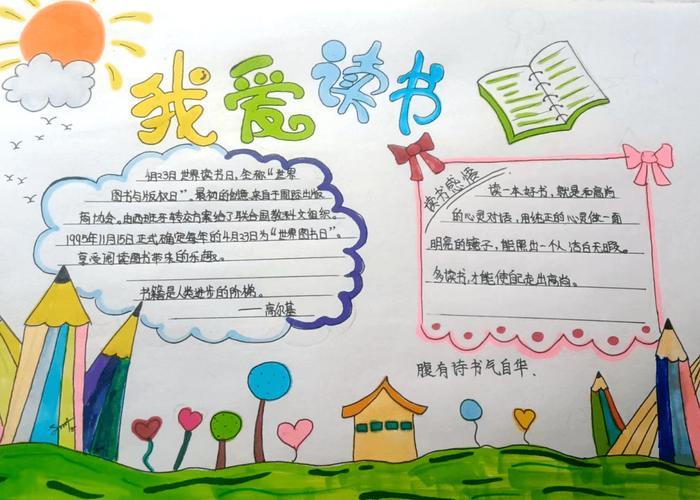 我爱读书
4月23日世界读书日,全称“世界
图书与版权日”。最初的创意来自于国际出版
商协会。由西班牙转交方案给了联合国教科文组织。
1995年11月15日正式确定每年的4月23日为“世界图书日”。
享受阅读图书带来的乐趣。
书籍是人类进步的阶梯。
——高尔基
读书感悟
读一本好书,就是和高尚
的心灵对话,用纯正的心灵做一面
明亮的镜子,能照出一个人洁白无暇。
多读书,才能使自己走出高尚。
腹有诗书气自华.